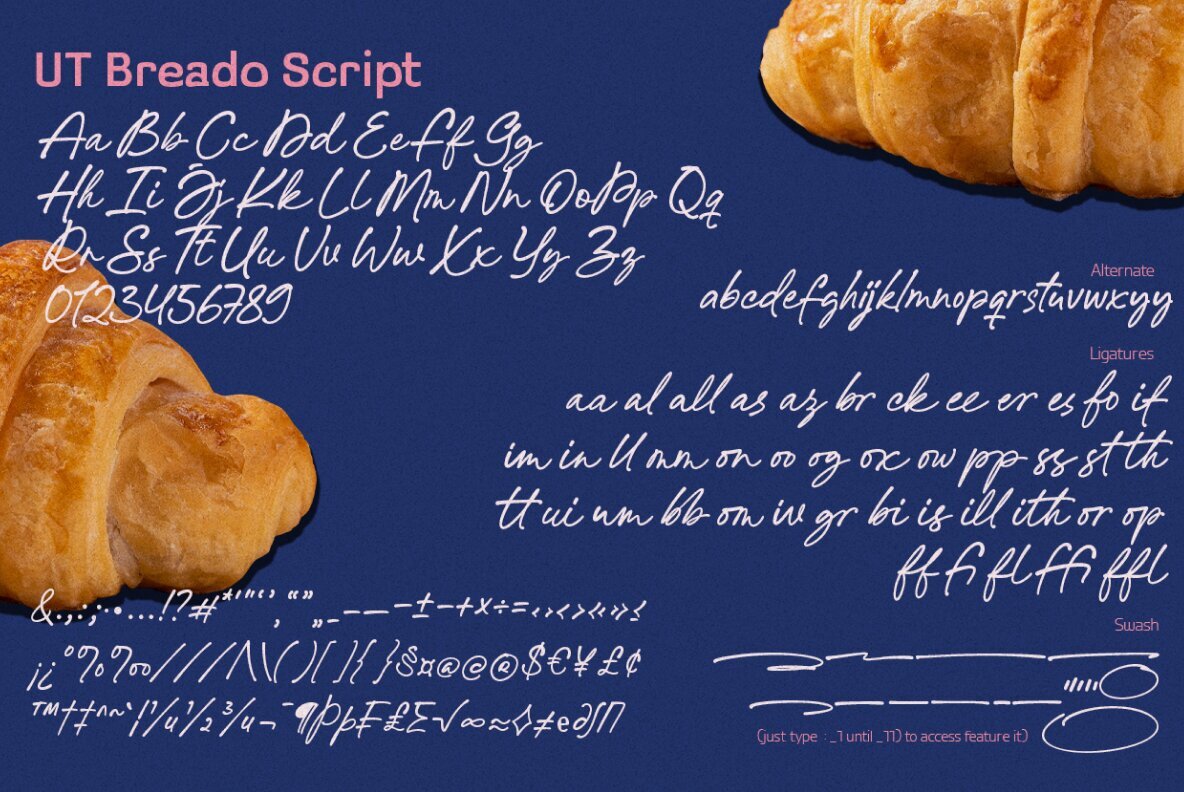 UT Breado Script
Aa Bb Cc Dd Ee Ff Gg
Hh Ii Jj Kk Ll Mm Nn Oo Pp Qq
Rr Ss Tt Uu Vv Ww Xx Yy Zz
0123456789
Alternate
abcdefghijklmnopqrstuvwxyy
Ligatures
aa al all as az br ck ee er es fo if
im in ll mm on oo og ox ow pp ss st th
tt ui um bb om iv gr bi is ill ith or op
ff fi fl ffi ffl
&.,:;·•...!?#*"'“‘’, “”„_—–-±−+×÷=‹›<>«»≥≤
¡¿°%‰///|\\()[]{}§¤@@@$€¥£¢
™†‡^~`¦¼½¾¬¯¶Þþ₣₤Σ√∞≈◊≠e∂∫∏
Swash
(just type : _1 until _11) to access feature it)